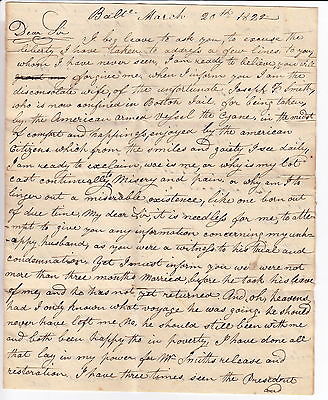 Balto. March 20th 1822
Dear Sir
I beg leave to ask you to excuse the
liberty I have taken to address a few lines, to you
whom I have never seen, I am ready to believe, you will
forgive me, when I informs you I am the
disconsolate wife, of the unfortunate, Joseph F. Smith,
who is now confined in Boston Jail for being taken
by the American armed Vessel the Cyane, in the midst
of comfort and happiness, enjoyed by the american
Citizens, which from the smiles and gaiety I see daily
I am ready to exclaim, woe is me or why is my lot
cast continually Misery and pain, or why am I to
linger out a miserable existence, like one born out
of due time, My dear Sir, it is needless for me, to atem-
-pt to give you any information concerning my unh-
appy husband, as you were a witness to his trial and
condemnation. Yet I must inform you we were not
more than three months Married, before he took his leave
of me, and he has not yet returned. And, oh, heavens
had I only known what voyage he was going, he should
never have left me No, he should still been with me
and both been happy tho in poverty, I have done all
that lay in my power for Mr Smiths release and
restoration, I have three times, seen the President
and